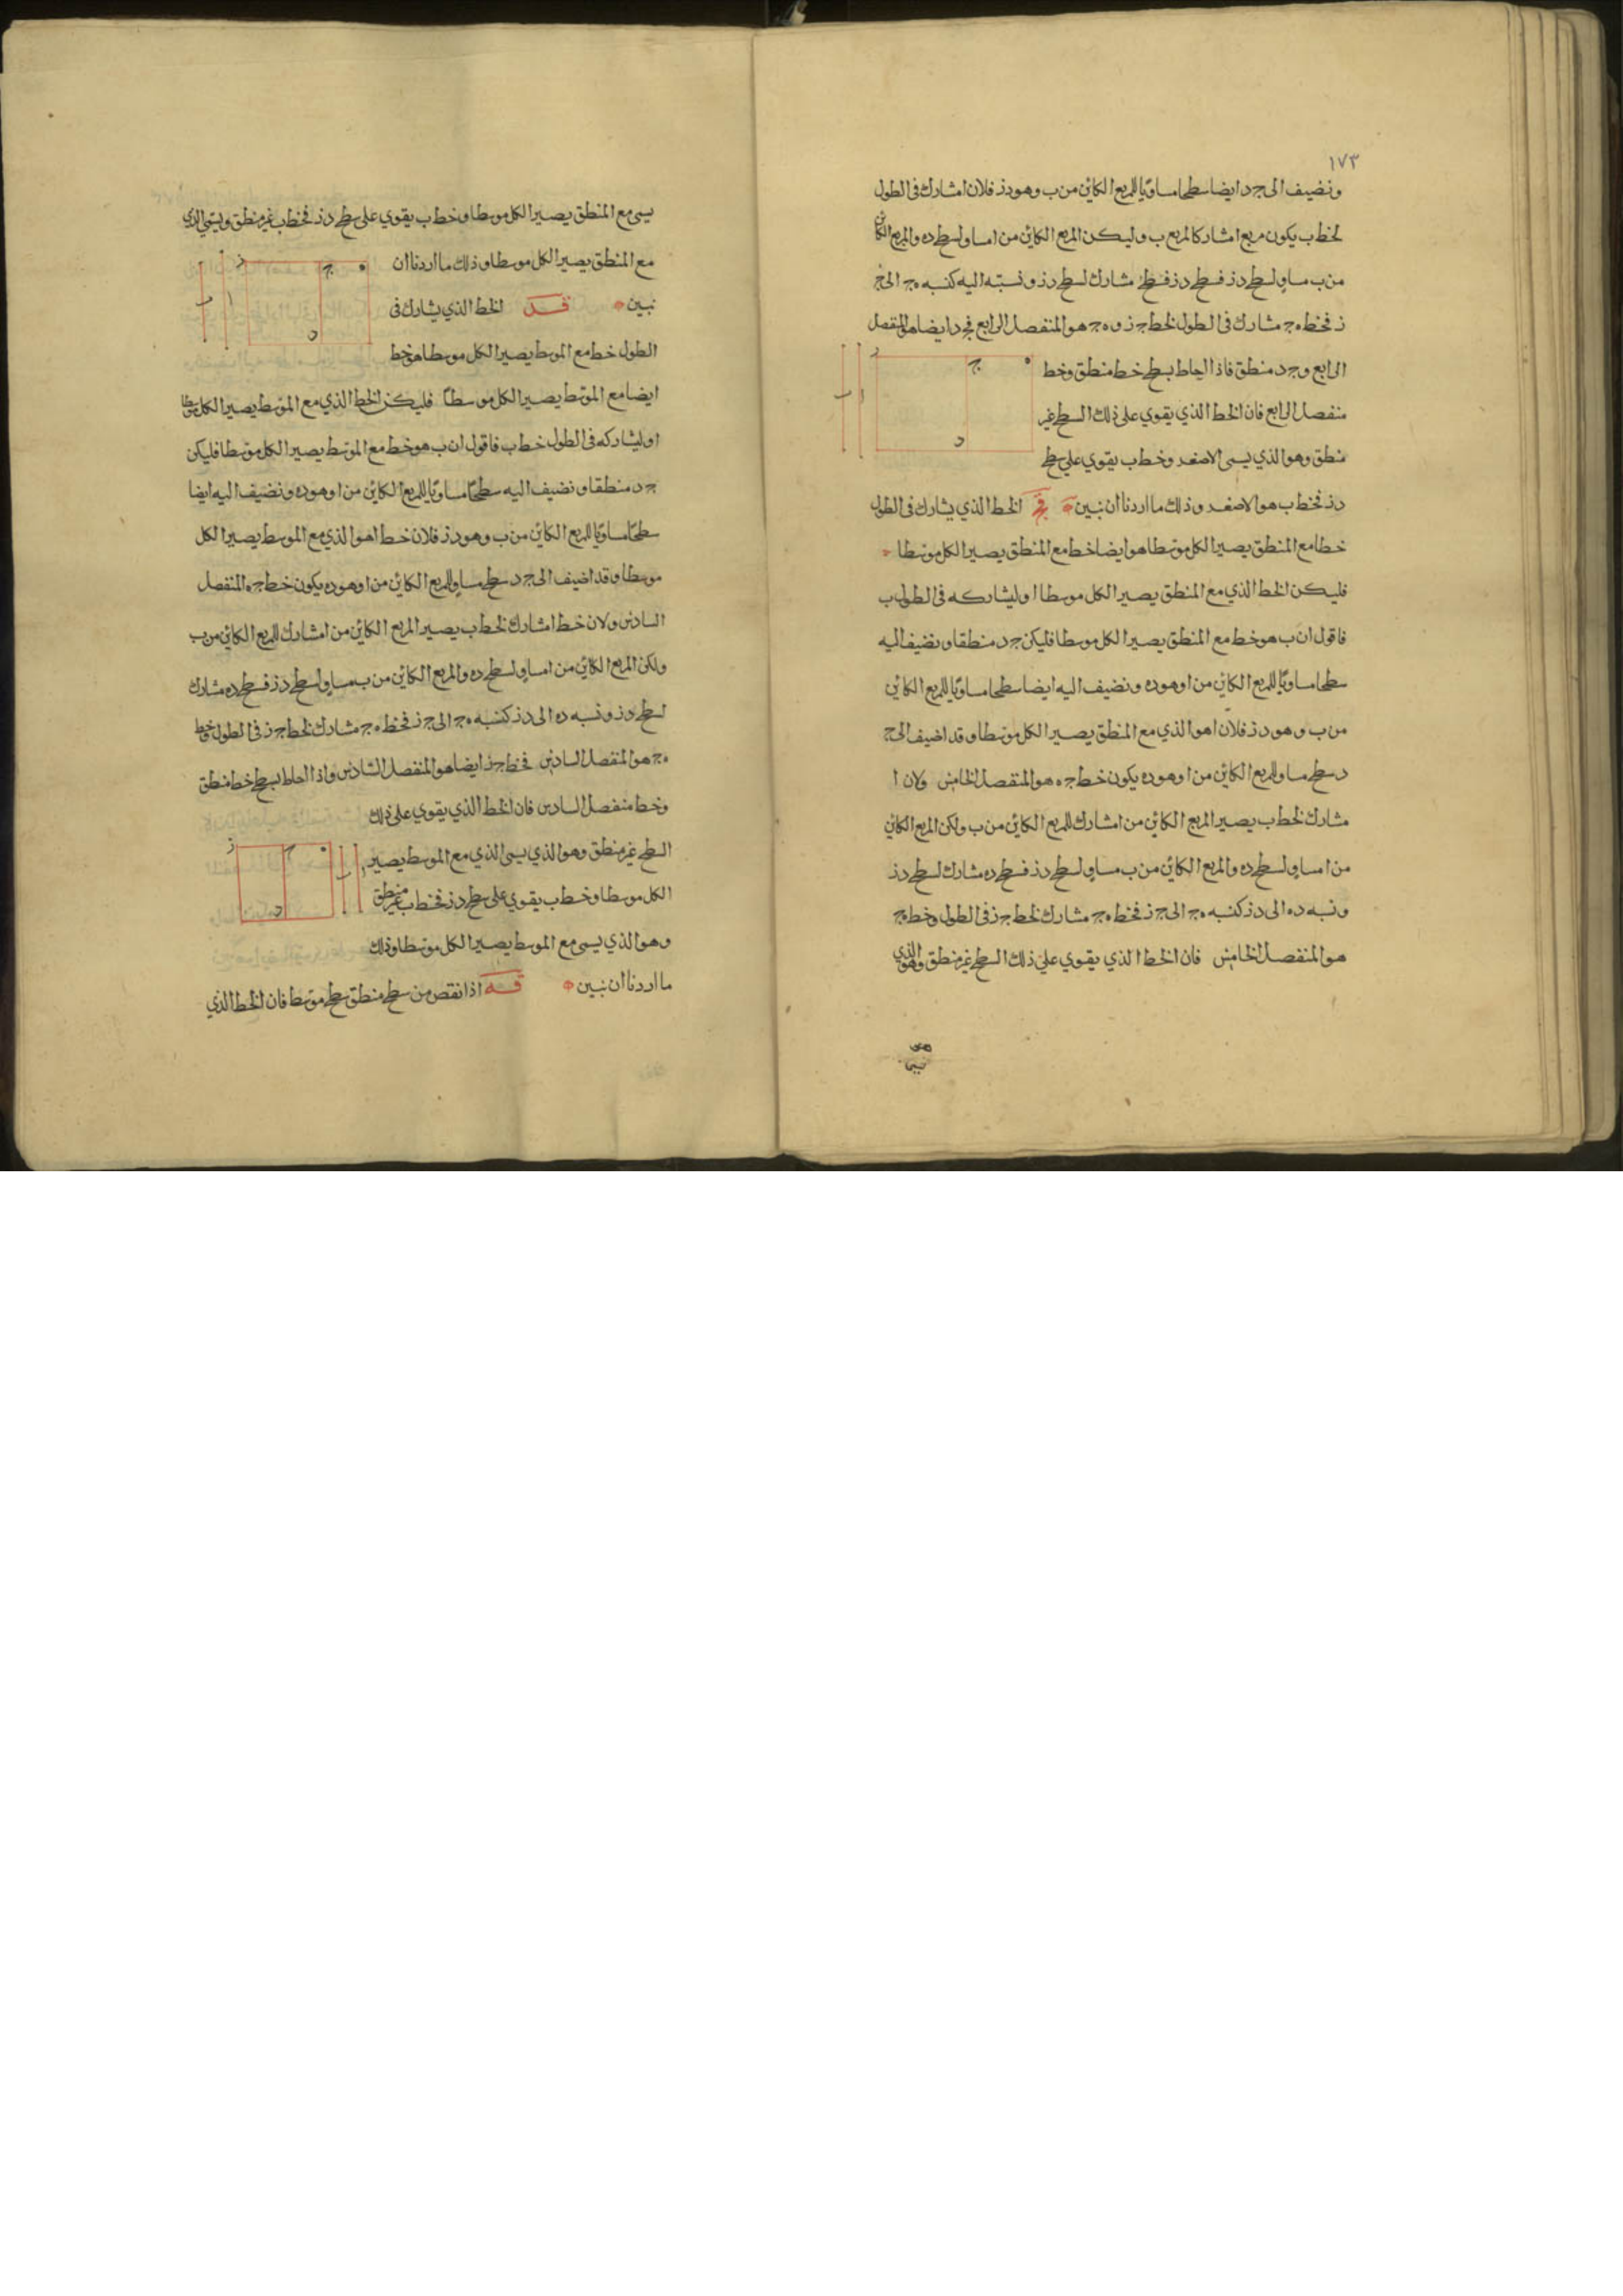 ١٧٣
ونضيف الى جد ايضا سطحا مساويا للمربع الكاين من ب وهو دز فلان ا مشارك فى الطول
لخط ب يكون مربع ا مشاركا لمربع ب وليكن المربع الكاين من ا مساو لسطح ده والمربع الكاين
من ب مساو لسطح دز فسطح مشارك لسطح دز ونسبته اليه كنسبه هج الى ج
ز فخط هج مشارك فى الطول لخط جز و هج هو المنفصل الرابع فجد ايضا هو المنفصل
الرابع و جد منطق فاذا احاط بسطح خط منطق وخط
منفصل الرابع فان الخط الذي يقوي على ذلك السطح غير
منطق وهو الذي يسمى الاصغر وخط ب يقوي على سطح
دز فخط ب هو الاصغر وذلك ما اردنا ان نبين قج الخط الذي يشارك فى الطول
خطا مع المنطق يصير الكل موسطا هو ايضا خط مع المنطق يصير الكل موسطا
فليكن الخط الذي مع المنطق يصير الكل موسطا ا وليشاركه فى الطول ب
فاقول ان ب هو خط مع المنطق يصير الكل موسطا فليكن جد منطقا ونضيف اليه
سطحا مساويا للمربع الكاين من ا وهو ده ونضيف اليه ايضا سطحا مساويا للمربع الكاين
من ب وهو دز فلان ا هو الذي مع المنطق يصير الكل موسطا وقد اضيف الى ج
د سطح مساو للمربع الكاين من ا وهو ده يكون خط جه هو المنفصل الخامس ولان ا
مشارك لخط ب يصير المربع الكاين من ا مشارك للمربع الكاين من ب ولكن المربع الكاين
من ا مساو لسطح ده والمربع الكاين من ب مساو لسطح دز فسطح ده مشارك لسطح دز
ونسبه ده الى دز كنسبه هج الى جز فخط هج مشارك لخط جز فى الطول وخط هج
هو المنفصل الخامس فان الخط الذي يقوي على ذلك السطح غير منطق وهو الذي
ه ج ز
د
ا ب
يسمى مع المنطق يصير الكل موسطا وخط ب يقوي على سطح دز فخط ب غير منطق ويسمى الذي
مع المنطق يصير الكل موسطا وذلك ما اردنا ان
نبين قد الخط الذي يشارك فى
الطول خط مع الموسط يصير الكل موسطا هو خط
ايضا مع الموسط يصير الكل موسطا فليكن الخط الذي مع الموسط يصير الكل موسطا
ا وليشاركه فى الطول خط ب فاقول ان ب هو خط مع الموسط يصير الكل موسطا فليكن
جد منطقا ونضيف اليه سطحا مساويا للمربع الكاين من ا وهو ده ونضيف اليه ايضا
سطحا مساويا للمربع الكاين من ب وهو دز فلان خط ا هو الذي مع الموسط يصير الكل
موسطا وقد اضيف الى جد سطح مساو للمربع الكاين من ا وهو ده يكون خط جه المنفصل
السادس ولان خط ا مشارك لخط ب يصير المربع الكاين من ا مشارك للمربع الكاين من ب
ولكن المربع الكاين من ا مساو لسطح ده والمربع الكاين من ب مساو لسطح دز فسطح ده مشارك
لسطح دز ونسبه ده الى دز كنسبه هج الى جز فخط هج مشارك لخط جز فى الطول وخط
هج هو المنفصل السادس فخط جز ايضا هو المنفصل السادس واذا احاط بسطح خط منطق
وخط منفصل السادس فان الخط الذي يقوي على ذلك
السطح غير منطق وهو الذي يسمى الذي مع الموسط يصير
الكل موسطا وخط ب يقوي على سطح دز فخط ب غير منطق
وهو الذي يسمى مع الموسط يصير الكل موسطا وذلك
ما اردنا ان نبين قه اذا نقص من سطح منطق سطح موسط فان الخط الذي
ه ج ز
د
ا ب
ه ج ز
د
ا ب